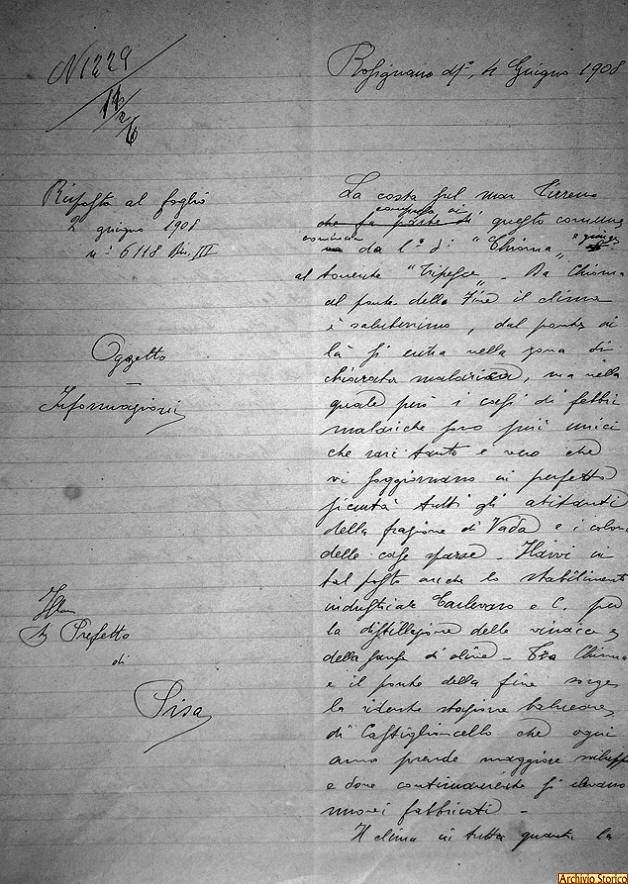 N 1229
14/2/6
Rosignano Mmo, 4 Giugno 1908
Risposta al foglio
2 giugno 1908
n° 6118 Div. III
Oggetto
Informazioni
Ill
Sr Prefetto
di
Pisa
La costa sul mar Tirreno
compresa in
che fa parte di questo comune
comincia da l° di "Chioma" e giunge
al torrente "Tripesce". Da Chioma
al ponte della Fine il clima
è saluberrimo, dal ponte in
là si entra nella zona di
chiarata malarica, ma nella
quale però i casi di febbri
malariche sono più unici
che rari tanto è vero che
vi soggiornano in perfetta
sicurtà tutti gli abitanti
della frazione di Vada e i coloni
delle case sparse. Havvi in
tal posto anche lo stabilimento
industriale Carlevaro e C. per
la distillazione delle vinacce e
della sansa di olive. Tra Chioma
e il ponte della Fine sorge
la ridente stazione balneare
di Castiglioncello che ogni
anno prende maggiore sviluppo
e dove continuamente si elevano
nuovi fabbricati.
Il clima in tutta quanta la
Archivio Storico